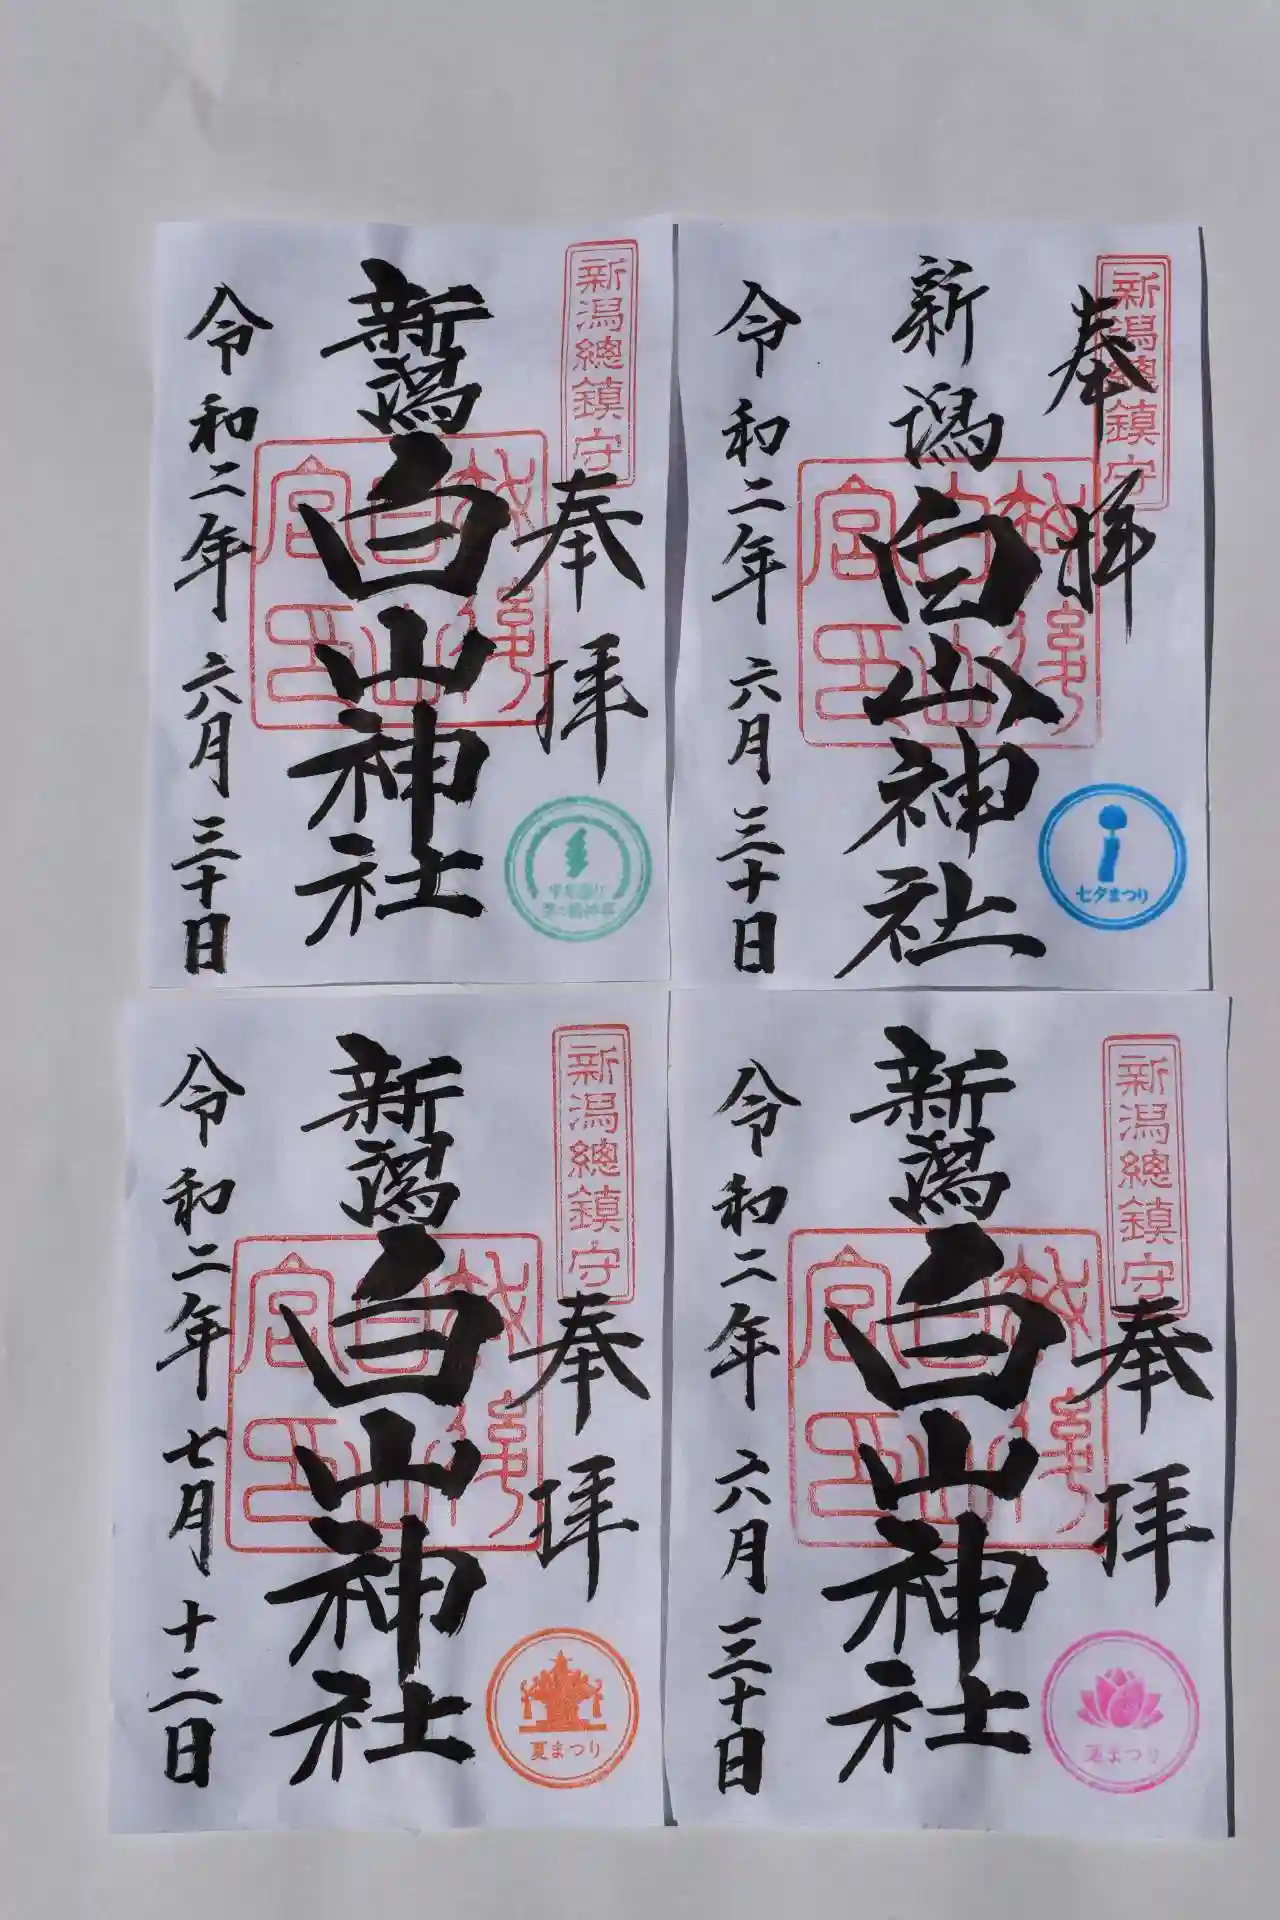 新潟總鎮守
奉拝
新潟白山神社
令和二年六月三十日
新潟總鎮守
奉拝
新潟白山神社
令和二年六月三十日
七夕まつり
新潟總鎮守
奉拝
新潟白山神社
令和二年七月十二日
夏まつり
新潟總鎮守
奉拝
新潟白山神社
令和二年六月三十日
蓮まつり